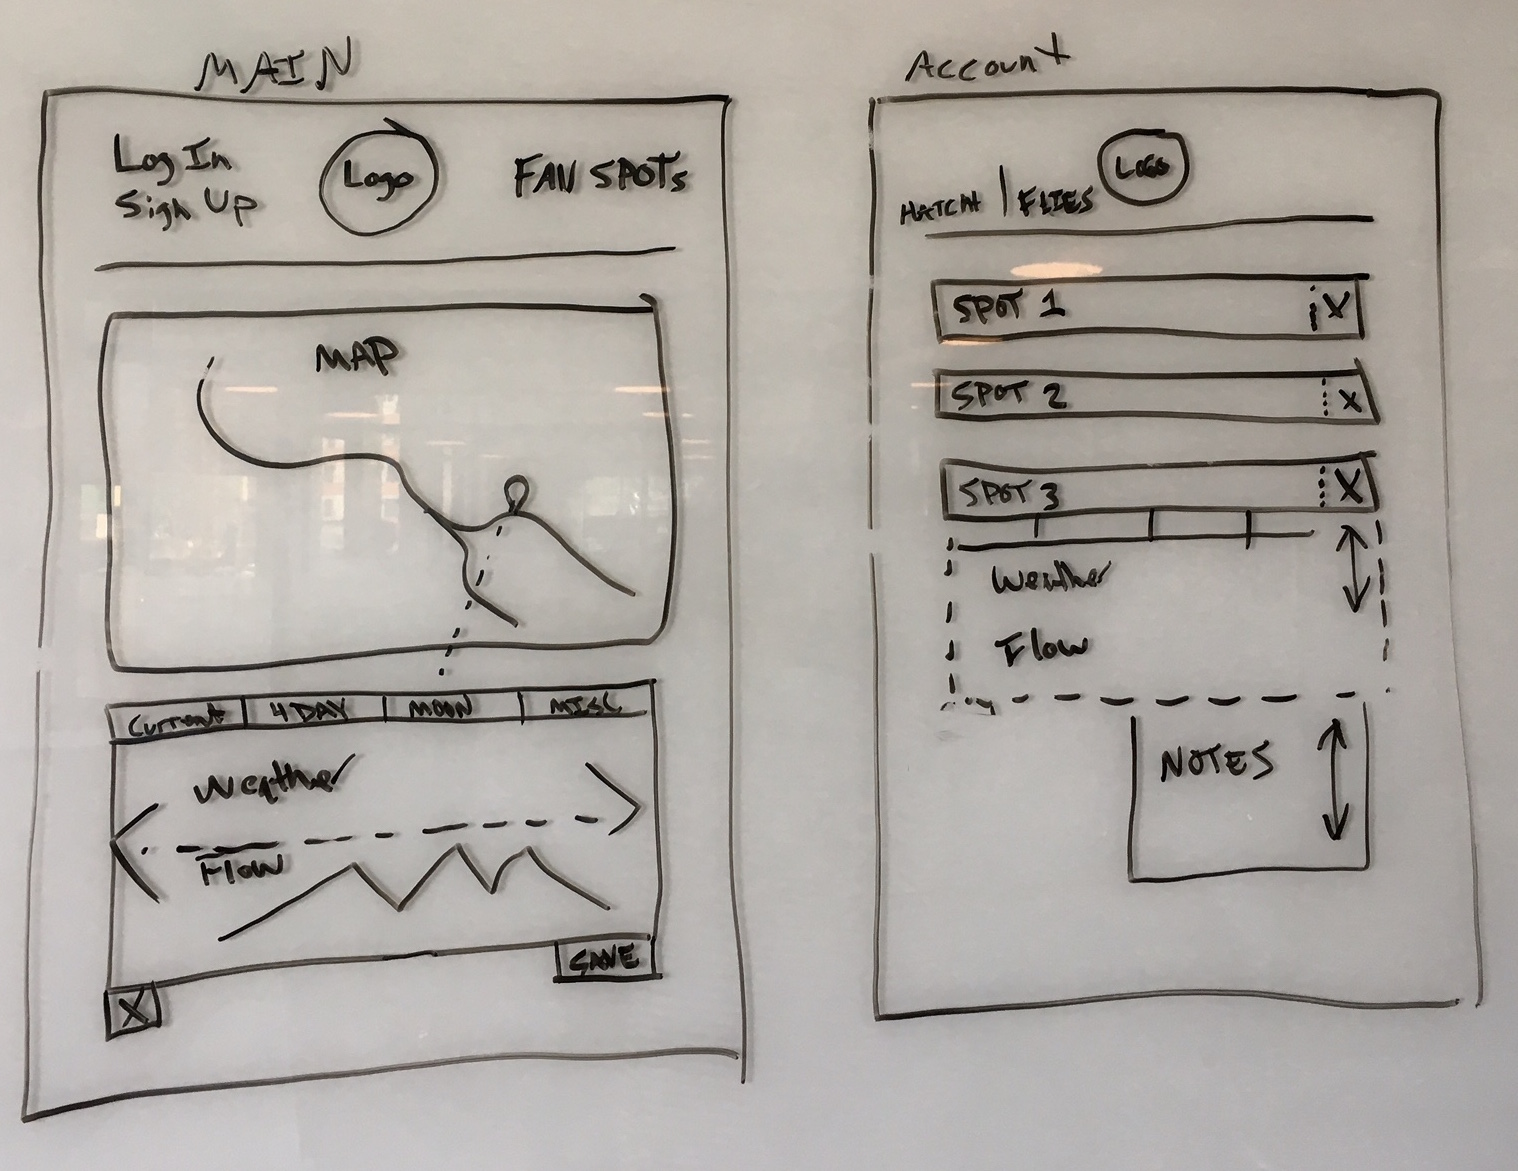 MAIN
Log In
Sign Up
Logo
FAN SPOTs
MAP
Current
4 DAY
MOON
MISC
Weather
Flow
SAVE
X
Account
HATCH | FLIES
LOGO
SPOT 1
X
SPOT 2
X
SPOT 3
X
Weather
Flow
NOTES